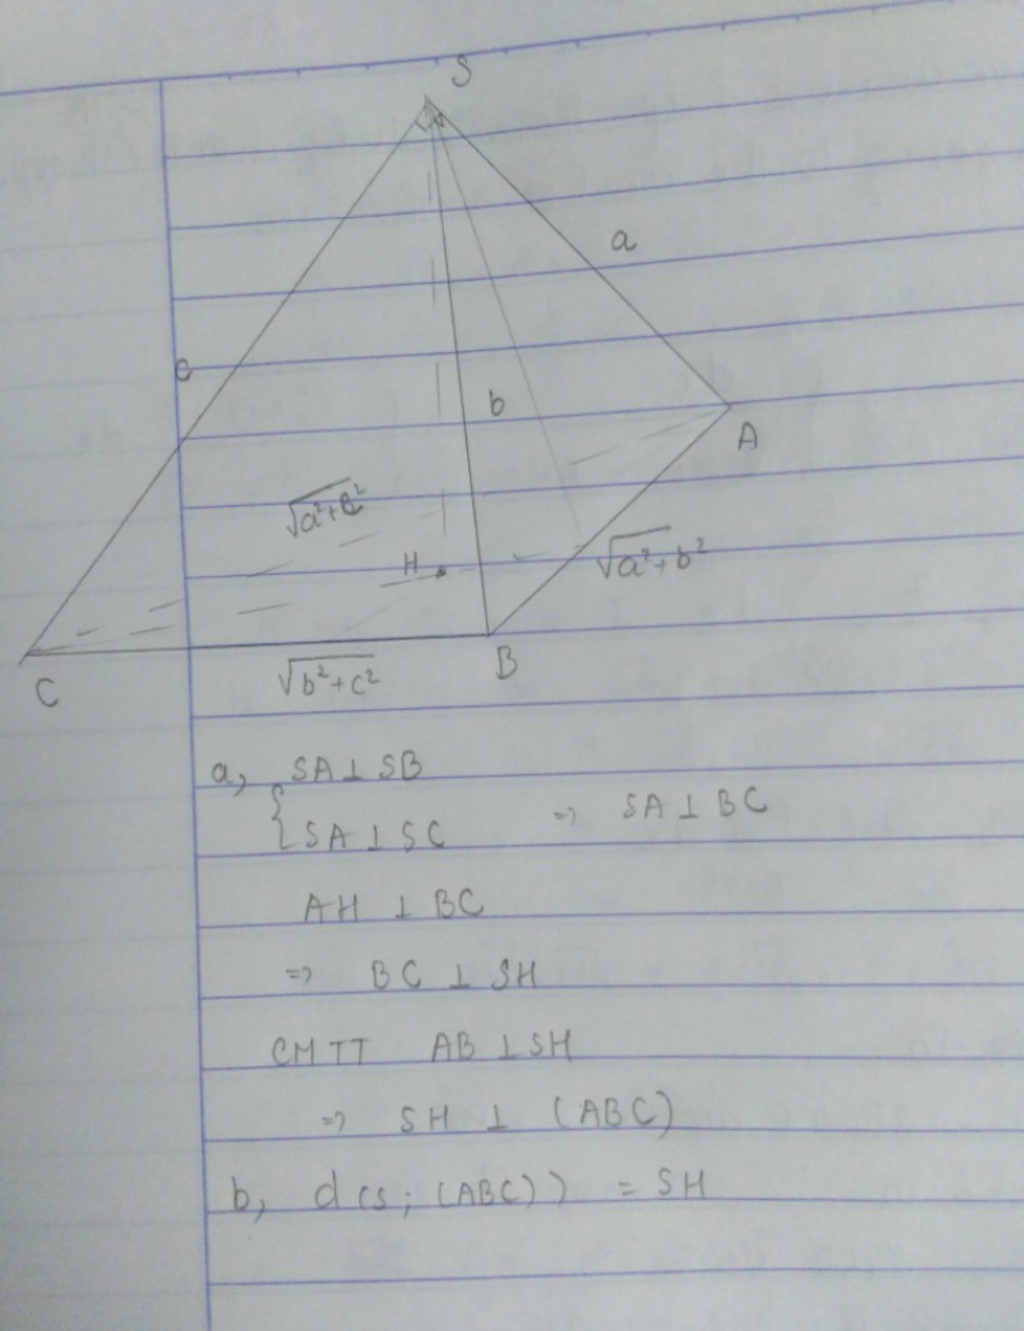 S
a
c
b
A
√a²+c²
H
√a²+b²
B
√b²+c²
C
a, { SA ⊥ SB
SA ⊥ SC => SA ⊥ BC
AH ⊥ BC
=> BC ⊥ SH
CMTT AB ⊥ SH
=> SH ⊥ (ABC)
b, d(s; (ABC)) = SH